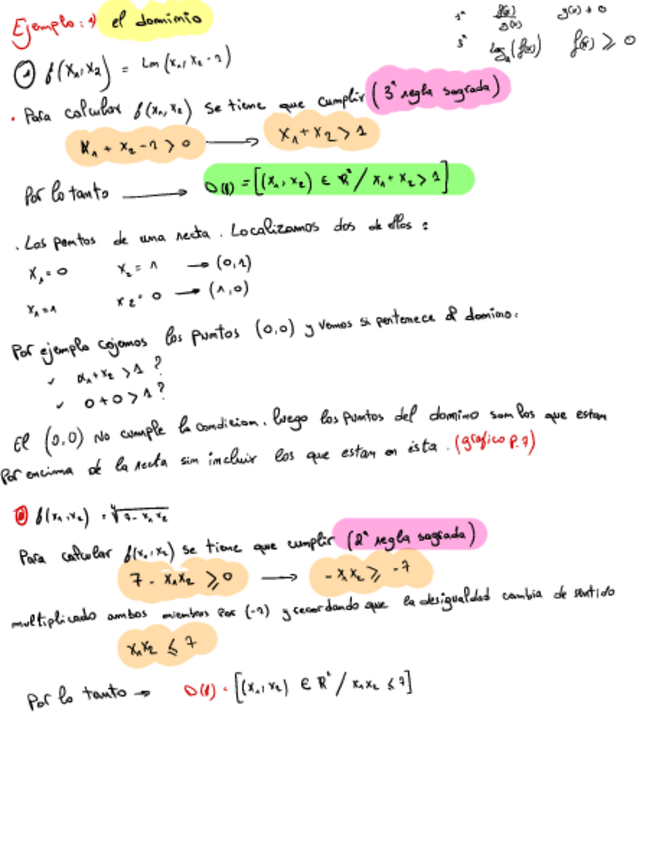 Ejemplo: 1) el dominio
1º f(x)/g(x) g(x) ≠ 0
3º log_a(f(x)) f(x) ≥ 0
① f(x₁,x₂) = Ln(x₁, x₂ - 1)
• Para calcular f(x₁,x₂) se tiene que cumplir (3ª regla sagrada)
x₁ + x₂ - 1 > 0 → x₁ + x₂ > 1
Por lo tanto → D(f) = [(x₁, x₂) ∈ ℝ² / x₁ + x₂ > 1]
. Los puntos de una recta. Localizamos dos de ellos :
x₁ = 0 x₂ = 1 → (0,1)
x₁ = 1 x₂ = 0 → (1,0)
Por ejemplo cojamos los puntos (0,0) y vemos si pertenece al domino.
✓ x₁ + x₂ > 1 ?
✓ 0 + 0 > 1 ?
El (0,0) No cumple la condicion. luego los puntos del domino son los que estan
Por encima de la recta sin incluir los que estan en ésta. (grafico p.7)
② f(x₁,x₂) = ∜7 - x₁x₂
Para calcular f(x₁,x₂) se tiene que cumplir (2ª regla sagrada)
7 - x₁x₂ ≥ 0 → - x₁x₂ ≥ -7
multiplicado ambos miembros por (-1) y recordando que la desigualdad cambia de sentido
x₁x₂ ≤ 7
Por lo tanto → D(f) = [(x₁,x₂) ∈ ℝ² / x₁x₂ ≤ 7]